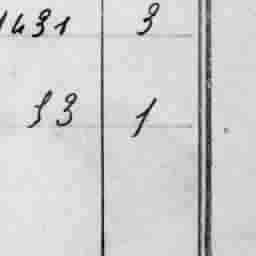 1431 3
33 1